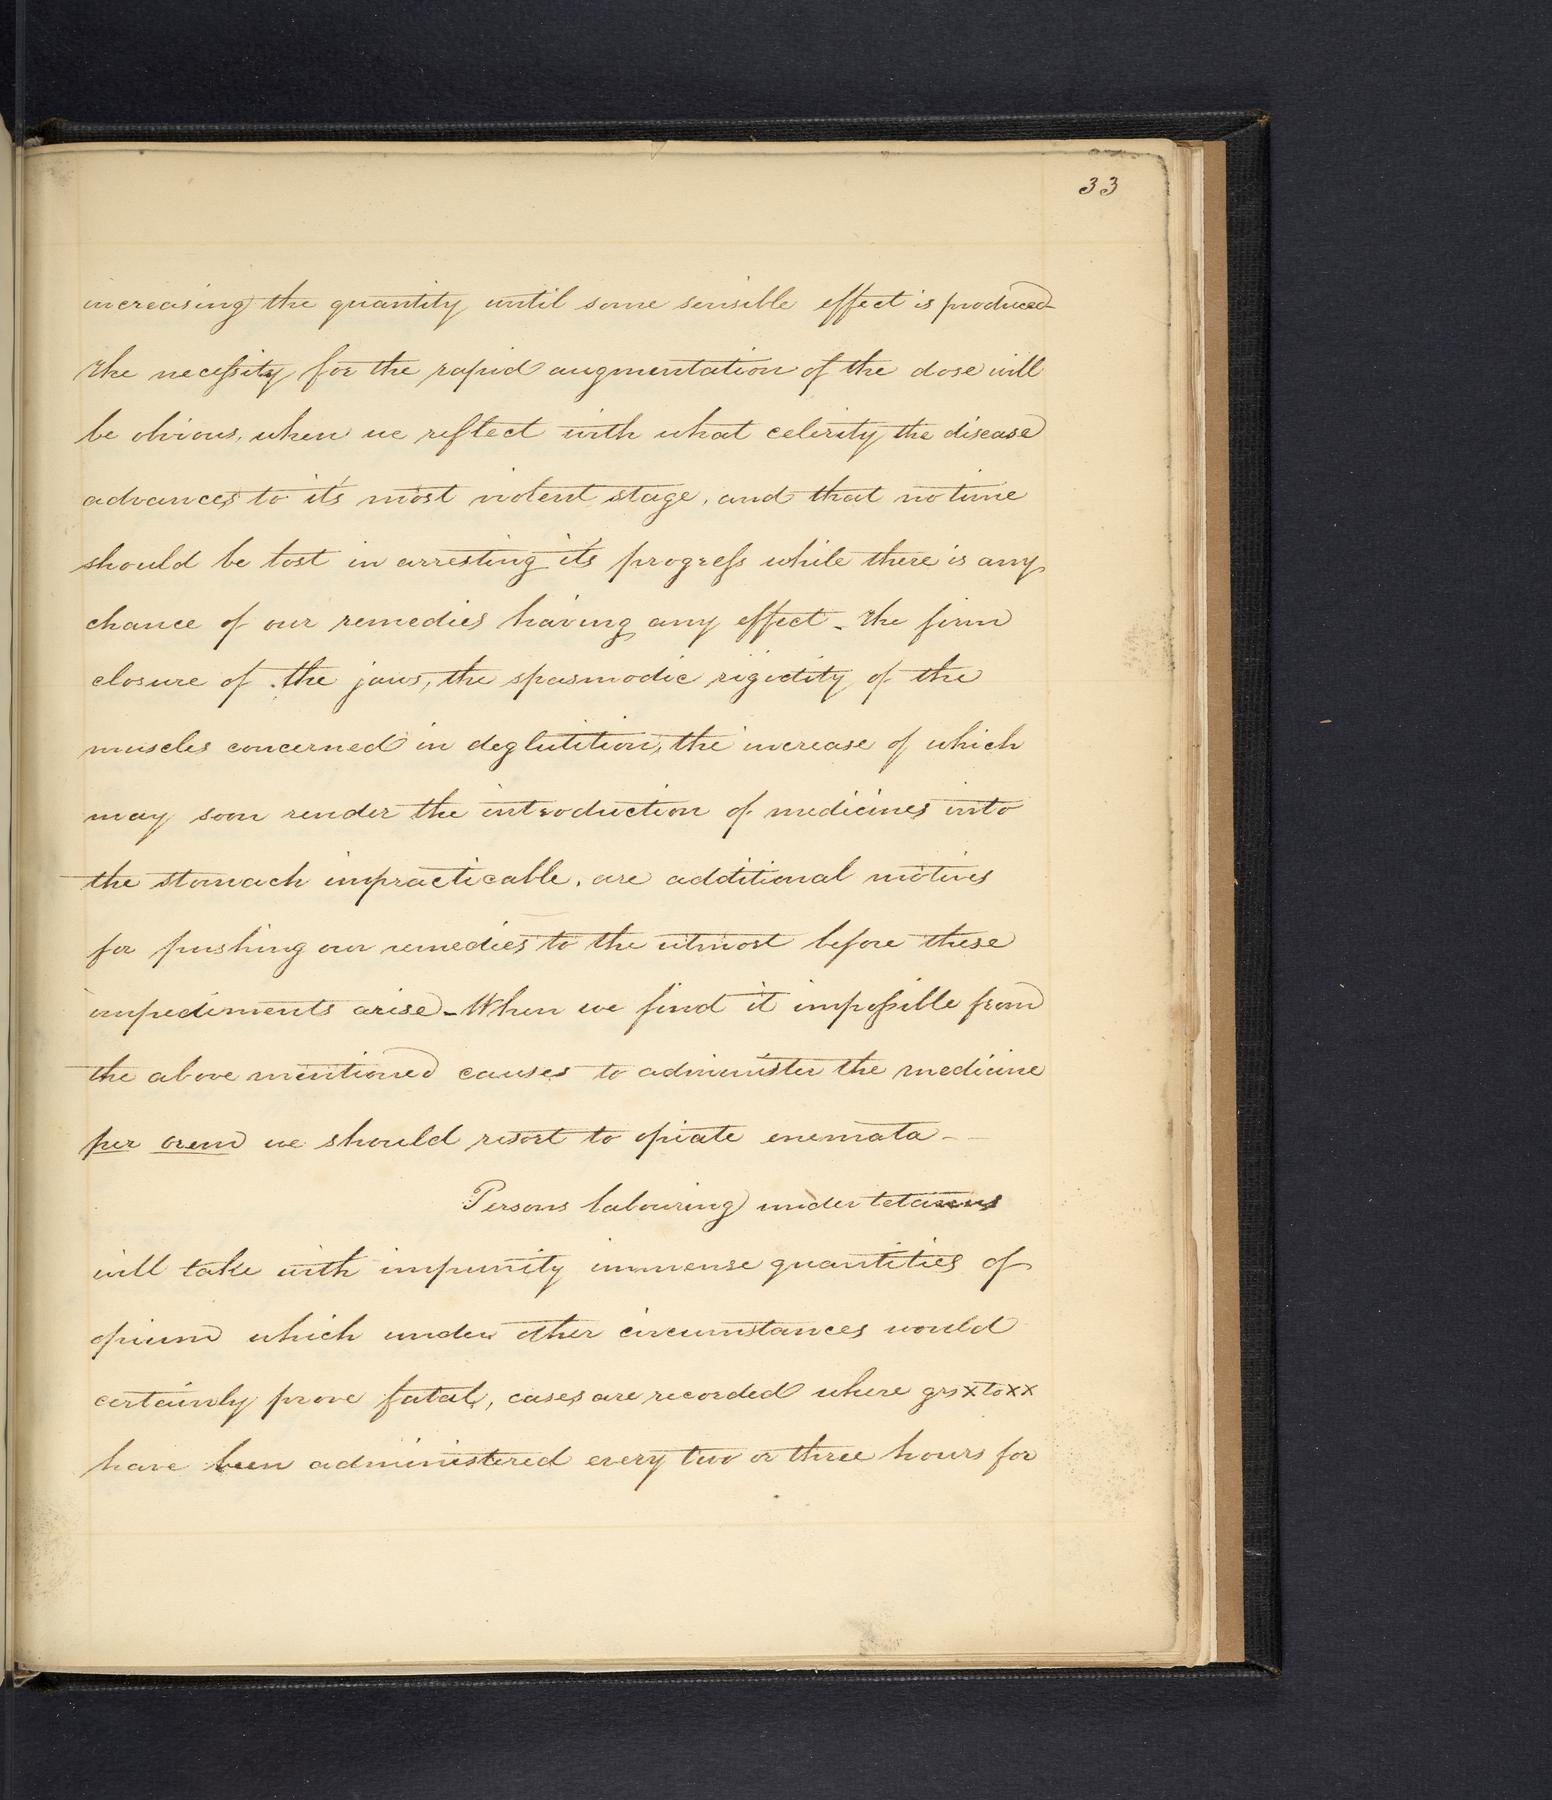 33
increasing the quantity until some sensible effect is produced
The necessity for the rapid augmentation of the dose will
be obvious, when we reflect with what celerity the disease
advances to it's most violent stage, and that no time
should be lost in arresting it's progress while there is any
chance of our remedies having any effect - The firm
closure of the jaws, the spasmodic rigidity of the
muscles concerned in deglutition, the increase of which
may soon render the introduction of medicines into
the stomach impracticable, are additional motives
for pushing our remedies to the utmost before these
impediments arise - When we find it impossible from
the above mentioned causes to administer the medicine
per orem we should resort to opiate enemata -
Persons labouring under tetanus
will take with impunity immense quantities of
opium which under other circumstances would
certainly prove fatal, cases are recorded where grs x to xx
have been administered every two or three hours for